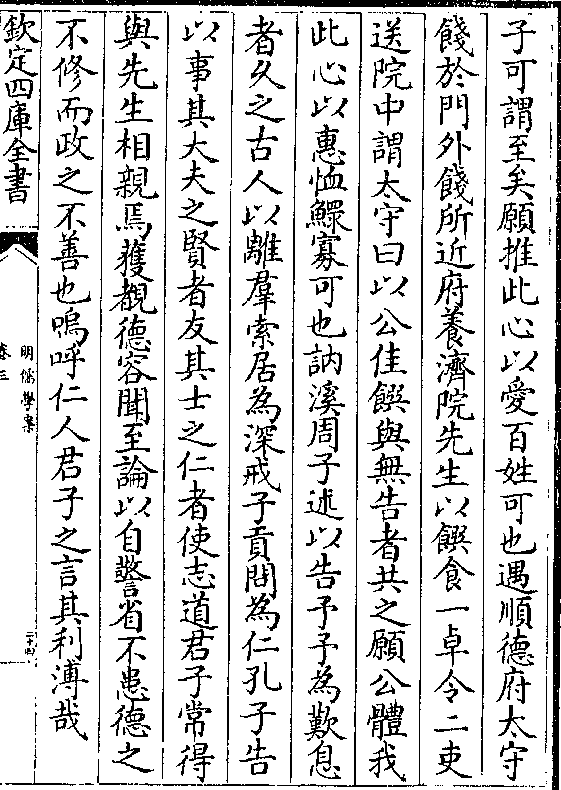 子可謂至矣願推此心以愛百姓可也遇順德府太守
餞於門外餞所近府養濟院先生以饌食一卓令二吏
送院中謂太守曰以公佳饌與無告者共之願公體我
此心以惠恤鰥寡可也訥溪周子述以告予予為歎息
者久之古人以離羣索居為深戒子貢問為仁孔子告
以事其大夫之賢者友其士之仁者使志道君子常得
與先生相親焉獲覩德容聞至論以自警省不患德之
不修而政之不善也嗚呼仁人君子之言其利溥哉
欽定四庫全書
明儒學案
卷三
二十四